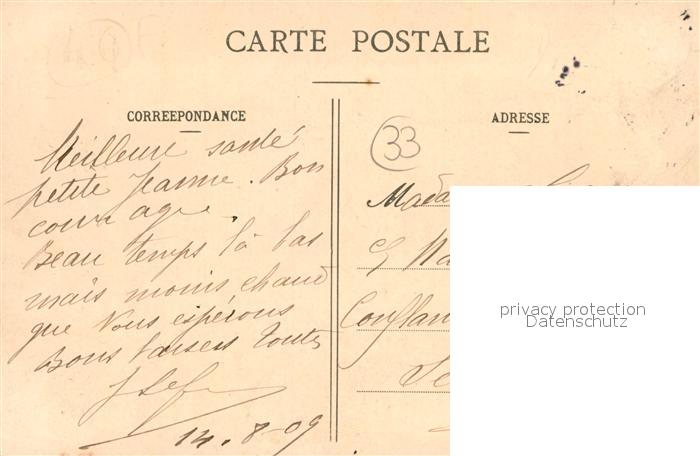 CARTE POSTALE
CORREEPONDANCE
ADRESSE
33
Meilleure santé
petite Jeanne. Bon
courage.
Beau temps là bas
mais moins chaud
que Nous espérons
Bons baisers Toutes
14.8-09
Mada
Conflan
privacy protection
Datenschutz